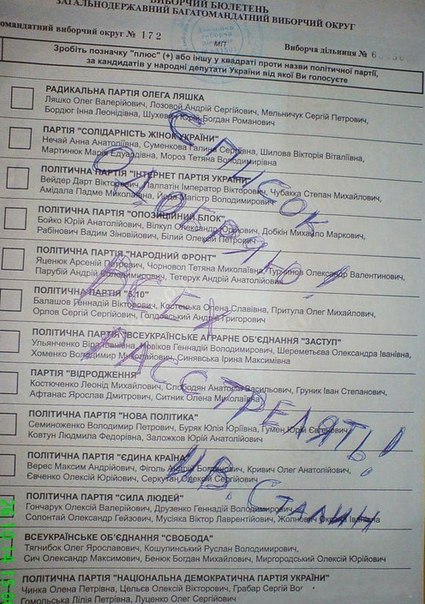 ВИБОРЧИЙ БЮЛЕТЕНЬ
ЗАГАЛЬНОДЕРЖАВНИЙ БАГАТОМАНДАТНИЙ ВИБОРЧИЙ ОКРУГ
омандатний виборчий округ № 172
МП
Виборча дільниця №
Зробіть позначку "плюс" (+) або іншу у квадраті проти назви політичної партії,
за кандидатів у народні депутати України від якої Ви голосуєте
РАДИКАЛЬНА ПАРТІЯ ОЛЕГА ЛЯШКА
Ляшко Олег Валерійович, Лозовой Андрій Сергійович, Мельничук Сергій Петрович,
Бордюг Інна Леонідівна, Шухевич Юрій-Богдан Романович
ПАРТІЯ "СОЛІДАРНІСТЬ ЖІНОК УКРАЇНИ"
Нечай Анна Анатоліївна, Суменкова Галина Сергіївна, Шилова Вікторія Віталіївна,
Мартинюк Марія Едуардівна, Мороз Тетяна Володимирівна
ПОЛІТИЧНА ПАРТІЯ "ІНТЕРНЕТ ПАРТІЯ УКРАЇНИ"
Вейдер Дарт Вікторович, Палпатін Імператор Вікторович, Чубакка Степан Михайлович,
Амідала Падме Миколаївна, Йода Магістр Володимирович
ПОЛІТИЧНА ПАРТІЯ "ОПОЗИЦІЙНИЙ БЛОК"
Бойко Юрій Анатолійович, Вілкул Олександр Юрійович, Добкін Михайло Маркович,
Рабінович Вадим Зіновійович, Білий Олексій Петрович
ПОЛІТИЧНА ПАРТІЯ "НАРОДНИЙ ФРОНТ"
Яценюк Арсеній Петрович, Чорновол Тетяна Миколаївна, Турчинов Олександр Валентинович,
Парубій Андрій Володимирович, Тетерук Андрій Анатолійович
ПОЛІТИЧНА ПАРТІЯ "5.10"
Балашов Геннадій Вікторович, Костецька Олена Славівна, Притула Олег Михайлович,
Орлов Сергій Сергійович, Голдовський Андрій Григорович
ПОЛІТИЧНА ПАРТІЯ "ВСЕУКРАЇНСЬКЕ АГРАРНЕ ОБ'ЄДНАННЯ "ЗАСТУП"
Ульянченко Віра Іванівна, Новіков Геннадій Володимирович, Шереметьєва Олександра Іванівна,
Хоменко Володимир Михайлович, Синявська Ірина Максимівна
ПАРТІЯ "ВІДРОДЖЕННЯ"
Костюченко Леонід Михайлович, Слободян Анатолій Васильович, Груник Іван Степанович,
Афтанас Ярослав Дмитрович, Ситник Олена Миколаївна
ПОЛІТИЧНА ПАРТІЯ "НОВА ПОЛІТИКА"
Семиноженко Володимир Петрович, Буряк Юлія Юріївна, Гумен Юрій Євгенович,
Ковтун Людмила Федорівна, Заложков Юрій Анатолійович
ПОЛІТИЧНА ПАРТІЯ "ЄДИНА КРАЇНА"
Верес Максим Андрійович, Фіголь Андрій Богданович, Кривич Олег Анатолійович,
Євченко Олексій Юрійович, Серкутан Олексій Сергійович
ПОЛІТИЧНА ПАРТІЯ "СИЛА ЛЮДЕЙ"
Гончарук Олексій Валерійович, Друзенко Геннадій Володимирович,
Солонтай Олександр Гейзович, Мусіяка Віктор Лаврентійович, Жолнович Оксана Іванівна
ВСЕУКРАЇНСЬКЕ ОБ'ЄДНАННЯ "СВОБОДА"
Тягнибок Олег Ярославович, Кошулинський Руслан Володимирович,
Сич Олександр Максимович, Бенюк Богдан Михайлович, Миргородський Олексій Юрійович
ПОЛІТИЧНА ПАРТІЯ "НАЦІОНАЛЬНА ДЕМОКРАТИЧНА ПАРТІЯ УКРАЇНИ"
Чинка Олена Петрівна, Цельов Олексій Вікторович, Грабар Сергій
Гомольська Лілія Петрівна, Луценко Олег Сергійович
СПИСОК
ОДОБРЯЮ!
ВСЕХ
РАССТРЕЛЯТЬ!
И.В. СТАЛИН